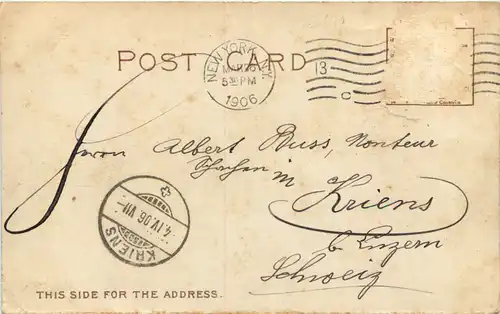 POST CARD
NEW YORK, N.Y.
MAR
5 30 PM
1906
13
C
Herrn Albert Buss, Monteur
Schachen in Kriens
b. Luzern
Schweiz
KRIENS
4.IV.06 VII-
THIS SIDE FOR THE ADDRESS.